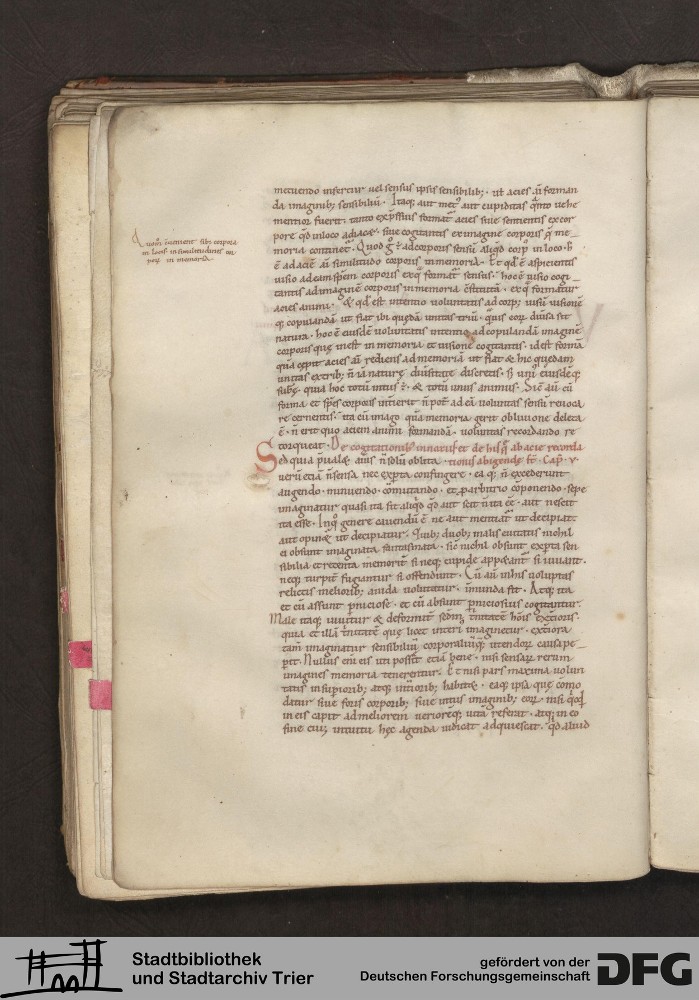 metuendo inseritur uel sensus ipsis sensibilib; · ut acies aī forman
da imaginib; sensibiliū · Itaq; aut met᷒ aut cupiditas q̄nto uehe
mentior fuerit · tanto exp̄ssius format̄ acies siue sentientis ex cor
pore qd in loco adiacet · siue cogitantis ex imagine corporis q̄ me
moria continet̄ · Quod ḡ ē ad corporis sensū aliqd corp᷒ in loco · h
ē ad aciē aī similitudo corporis in memoria · Et qd ē aspicientis
uisio ad eam spem corporis ex q format̄ sensus · hoc ē uisio cogi
tantis ad imaginē corporis in memoria c̄stitutā · ex q formatur
acies animi · & qd est intentio uoluntatis ad corp᷒ uisū uisionē
q; copulandā ut fiat ibi quedā unitas triū · quis eorū diūsa sit
natura · hoc ē eiusdē uoluntatis intentio ad copulandā imaginē
corporis que inest in memoria et uisionē cogitantis · idest formā
quā cepit acies aī rediens ad memoriā ut fiat & hic quedam
unitas ex trib; n̄ iā nature diūsitate discretis · s; uni᷒ eiusdēq;
subē · quia hoc totū intus ē · & totū unus animus · Sic aū cū
forma et spēs corporis interierit n̄ pot̄ ad eā uoluntas sensū reuoca
re cernentis · ita cū imago quā memoria gerit obliuione deleta
ē · n̄ erit quo aciem animi formandā · uoluntas recordando re
torqueat · De cogitationib; et de his q ab acie recorda
Sed quia p̄ualet aius n̄ solū oblita · tionis abigende st̄ · Cap̄ · v ·
uerū etiā n̄ sensa nec expta confingere · ea q; n̄ exciderunt
augendo · minuendo · cōmutando · et p arbitrio cōponendo · sepe
imaginatur quasi ita sit aliqd qd aut scit n̄ ita eē · aut nescit
ita esse · In q genere cauendū ē ne aut mentiat̄ ut decipiat ·
aut opinet̄ ut decipiatur · Quib; duob; malis euitatis nichil
ei obsunt imaginata fantasmata · sic nichil obsunt expta sen
sibilia et retenta memorit̄ si neq; cupide appetant̄ si iuuant ·
neq; turpit̄ fugiantur si offendunt · Cū aū in his uoluptas
relictis meliorib; auida uolutatur · inmunda fit · Atq; ita
et cū assunt pniciose · et cū absunt pniciosius cogitantur ·
Male itaq; uiuitur & deformit̄ scdm̄ t̄nitatē hois exterioris ·
quia et illā t̄nitatē que licet interi᷒ imaginetur · exteriora
tam̄ imaginatur sensibiliū corporaliūq; utendorū causa pe
pit · Nullus eni eis uti possit etiā bene · nisi sensarū rerum
imagines memoria tenerentur · Et nisi pars maxima uolun
tatis in supiorib; atq; interiorib; habitet · eaq; ipsa que cōmo
datur siue foris corporib; siue intus imaginib; eorū · nisi qcqd
in eis capit ad meliorem uerioreq; uitā referat · atq; in eo
fine cui᷒ intuitu hec agenda iudicat adquiescat · qd aliud
Stadtbibliothek
und Stadtarchiv Trier
gefördert von der
Deutschen Forschungsgemeinschaft
DFG